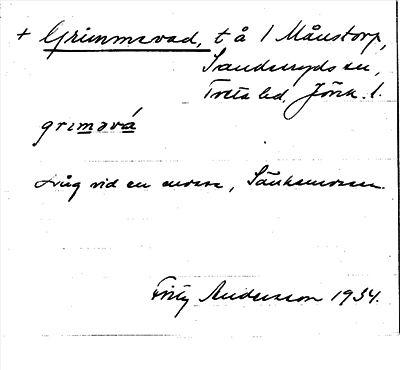 + Grimmsvad, t å 1 Månstorp,
Sandseryds sn,
Tveta hd, Jönk. l.
grimsvá
Låg vid en mosse, Sänksmossen.
Fritz Andersson 1934.